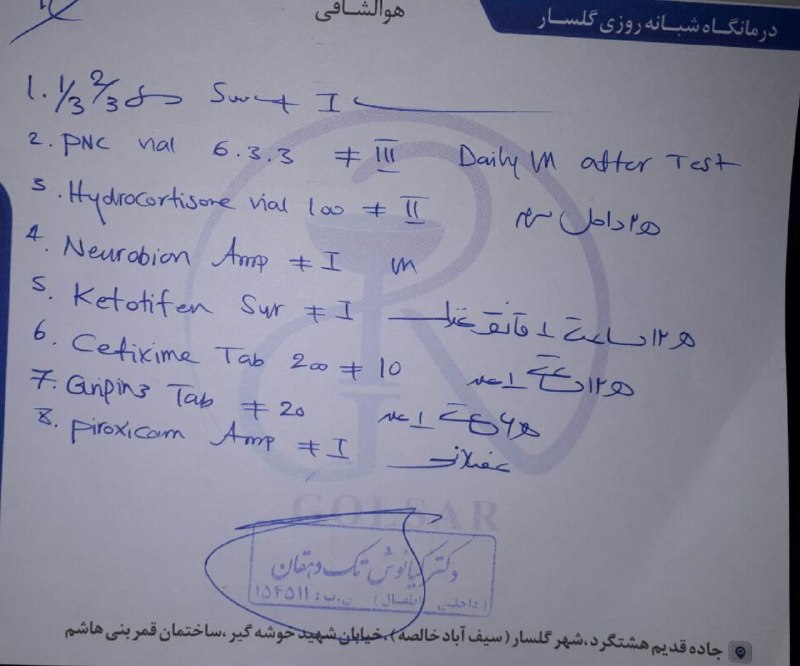 هوالشافی
درمانگاه شبانه روزی گلسار
1. 1/3 2/3 I
2. PNC vial 6.3.3 ≠ III Daily IM after Test
3. Hydrocortisone vial 100 ≠ II
4. Neurobion Amp ≠ I IM
5. Ketotifen Sur ≠ I هر ۱۲ ساعت ۱ قاشق غذا
6. Cefixime Tab 200 ≠ 10 هر ۱۲ ساعت ۱ عدد
7. Gripins Tab ≠ 20 هر ۶ ساعت ۱ عدد
8. piroxicam Amp ≠ I عضلانی
GOLSAR
دکتر کیانوش تک دهقان
ن.پ: ۱۵۴۵۱۱
جاده قدیم هشتگرد،شهر گلسار (سیف آباد خالصه)،خیابان شهید خوشه گیر،ساختمان قمر بنی هاشم